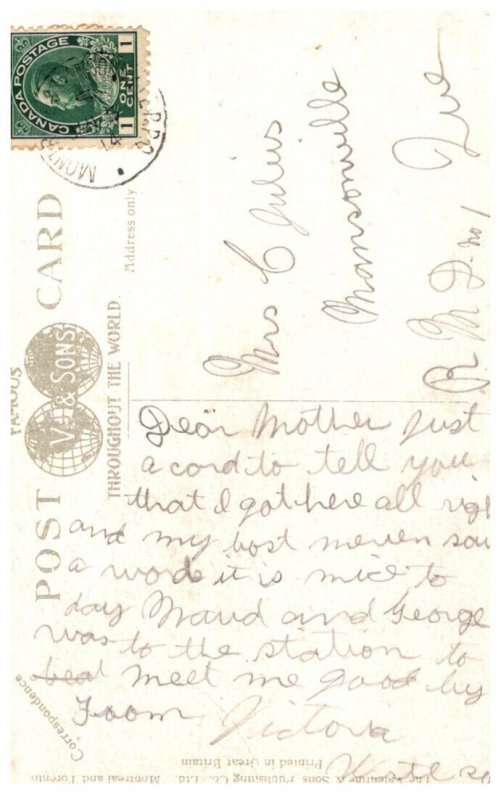 CANADA POSTAGE
1 ONE CENT 1
FAMOUS
POST CARD
V & SONS
THROUGHOUT THE WORLD.
Address only
Correspondence
Mrs C Julius
Mansonville
R M D no 1 Que
Dear Mother Just
a card to tell you
that I got here all rig
and my bost meven sai
a word it is nice to
day Maud and George
was to the station to
meet me good by
From Victora
The Valentine & Sons Publishing Co., Ltd. Montreal and Toronto
Printed in Great Britain